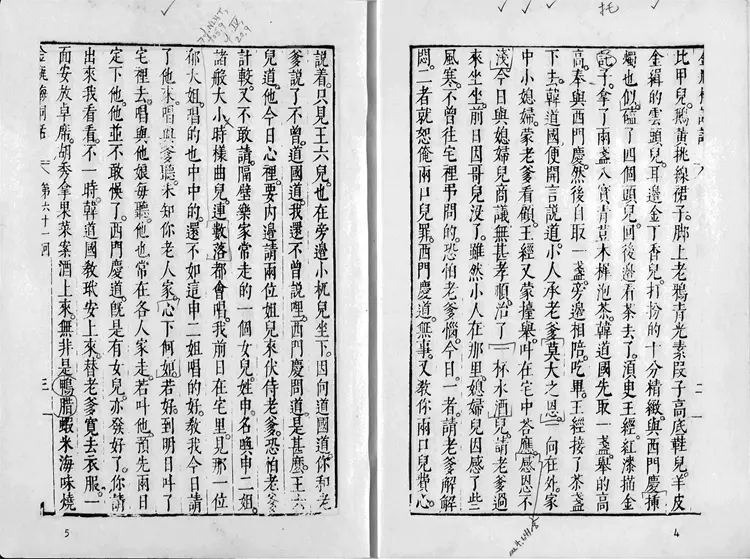 比甲兒。鵝黃挑線裙子。脚上老鴉青光素段子高底鞋兒。羊皮
金緝的雲頭兒。耳邊金丁香兒。打扮的十分精緻。與西門慶挿
燭也似。磕了四個頭兒。回後邊看茶去了。湏臾王經紅漆描金
託子。拿了兩盞八寳青荳木樨泡茶。韓道國先取一盞。舉的高
高。奉與西門慶。然後自取一盞。旁邊相陪。吃畢。王經接了茶盞
下去。韓道國便開言說道。小人承老爹莫大之恩。一向在外。家
中小媳婦。蒙老爹看顧。王經又蒙擡舉。叫在宅中答應。感恩不
淺。今日與媳婦兒商議。無甚孝順。治了一杯水酒兒。請老爹過
來坐坐。前日因哥兒沒了。雖然小人在那里。媳婦兒因感了些
風寒。不曾往宅裡弔問的。恐怕老爹惱。今日一者請老爹解解
悶。二者就恕俺兩口兒罪。西門慶道。無事又教你兩口兒費心。
二
4
托
說着。只見王六兒也在旁邊小杌兒坐下。因向道國道。你和老
爹說了不曾。道國道。我還不曾說哩。西門慶問道。是甚麼。王六
兒道。他今日心裡。要內邊請兩位姐兒來伏侍老爹。恐怕老爹
計較。又不敢請。隔壁樂家常走的一個女兒。姓申。名喚申二姐。
諸般大小時樣曲兒。連數落都會唱。我前日在宅里。見那一位
郁大姐。唱的也中中的。還不如這申二姐唱的好。教我今日請
了他來。唱與爹聽。未知你老人家。心下何如。若好到明日叫了
宅裡去。唱與他娘每聽。他也常在各人家走。若叫他。預先兩日
定下他。他並不敢悞了。西門慶道。旣是有女兒。亦發好了。你請
出來我看看。不一時。韓道國教玳安上來。替老爹寬去衣服。一
面安放卓席。胡秀拿果菜案酒上來。無非是鴨臘。蝦米。海味。燒
金瓶梅詞話 第六十一回 三
5